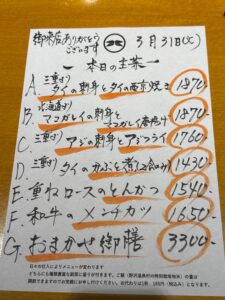 御来店ありがとう
ございます
3月31日(火)
ー本日の主菜ー
A. 三重(産) タイの刺身とタイの西京焼き 1870-
B. 北海道(産) マコガレイの刺身とマコガレイ唐揚げ 1870-
C. 三重(産) アジの刺身とアジフライ 1760-
D. 三重(産) タイのかぶと煮(定食のみ) 1430-
E. 重ねロースのとんかつ 1540-
F. 和牛のメンチカツ 1650-
G. おまかせ御膳 3300-
日々の仕入によりメニューが変わります